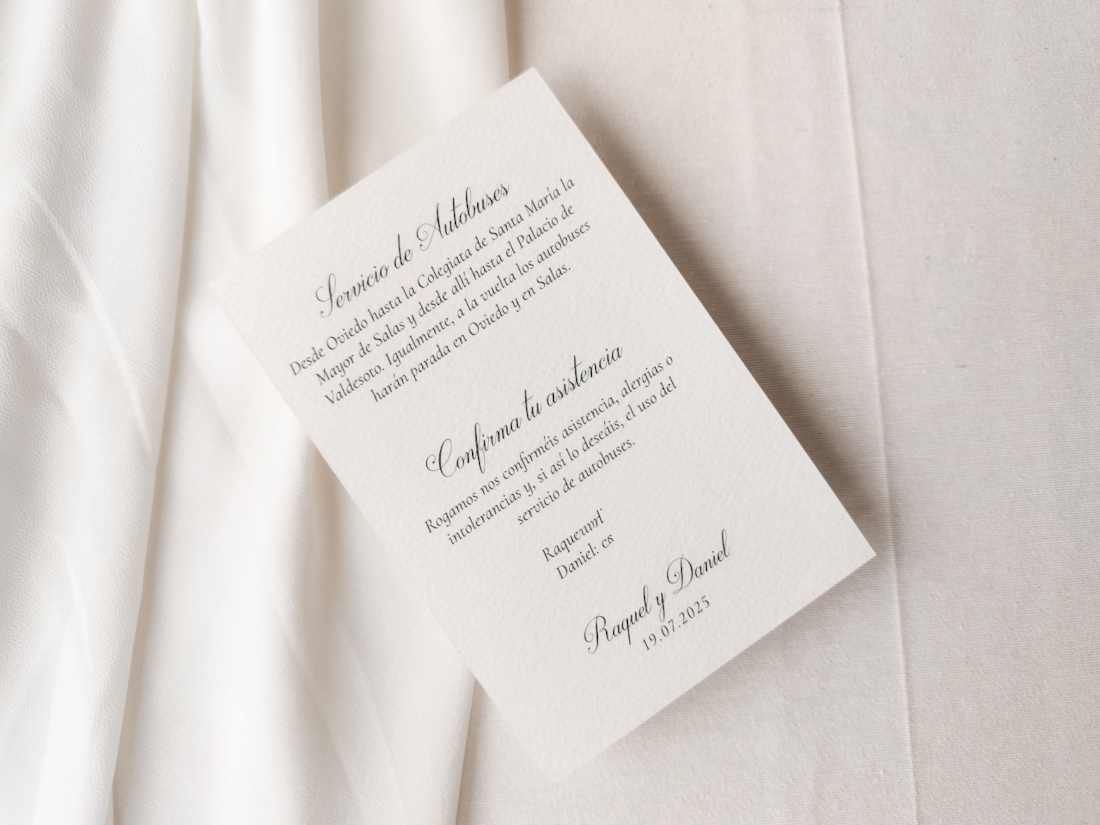 Servicio de Autobuses
Desde Oviedo hasta la Colegiata de Santa María la
Mayor de Salas y desde allí hasta el Palacio de
Valdesoto. Igualmente, a la vuelta los autobuses
harán parada en Oviedo y en Salas.
Confirma tu asistencia
Rogamos nos confirméis asistencia, alergias o
intolerancias y, si así lo deseáis, el uso del
servicio de autobuses.
Daniel:
Raquel y Daniel
19.07.2025